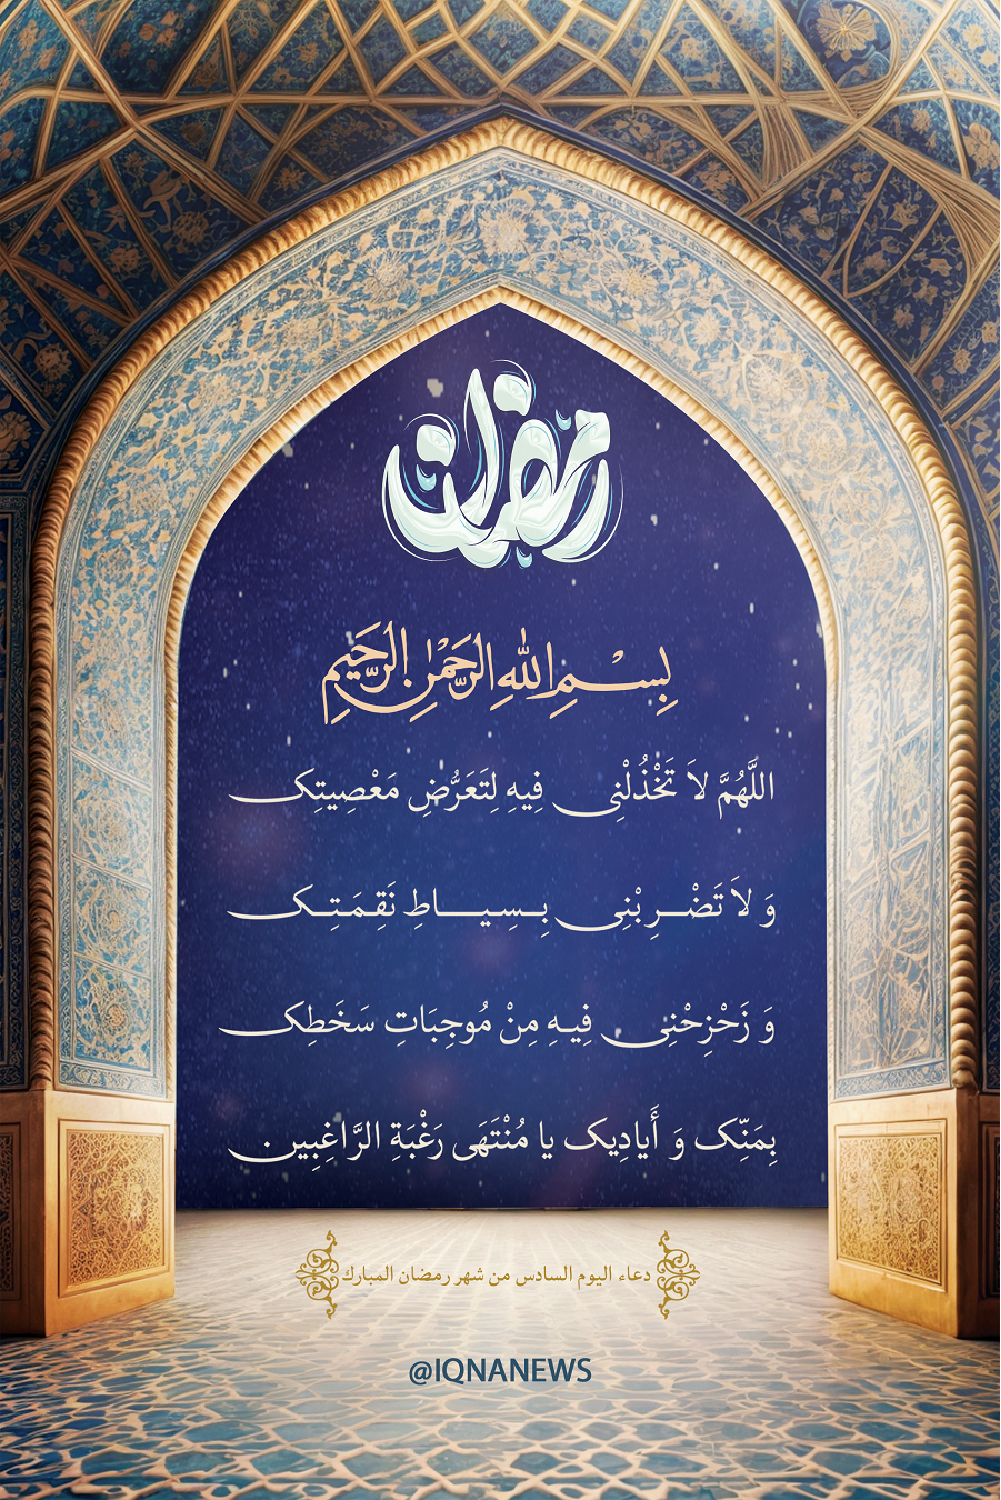 رمضان
بِسْمِ اللهِ الرَّحْمٰنِ الرَّحِیمِ
اللَّهُمَّ لاَ تَخْذُلْنِی فِیهِ لِتَعَرُّضِ مَعْصِیتِک
وَ لاَ تَضْرِبْنِی بِسِیاطِ نَقِمَتِک
وَ زَحْزِحْنِی فِیهِ مِنْ مُوجِبَاتِ سَخَطِک
بِمَنِّک وَ أَیادِیک یا مُنْتَهَی رَغْبَةِ الرَّاغِبِین.
دعاء اليوم السادس من شهر رمضان المبارك
@IQNANEWS